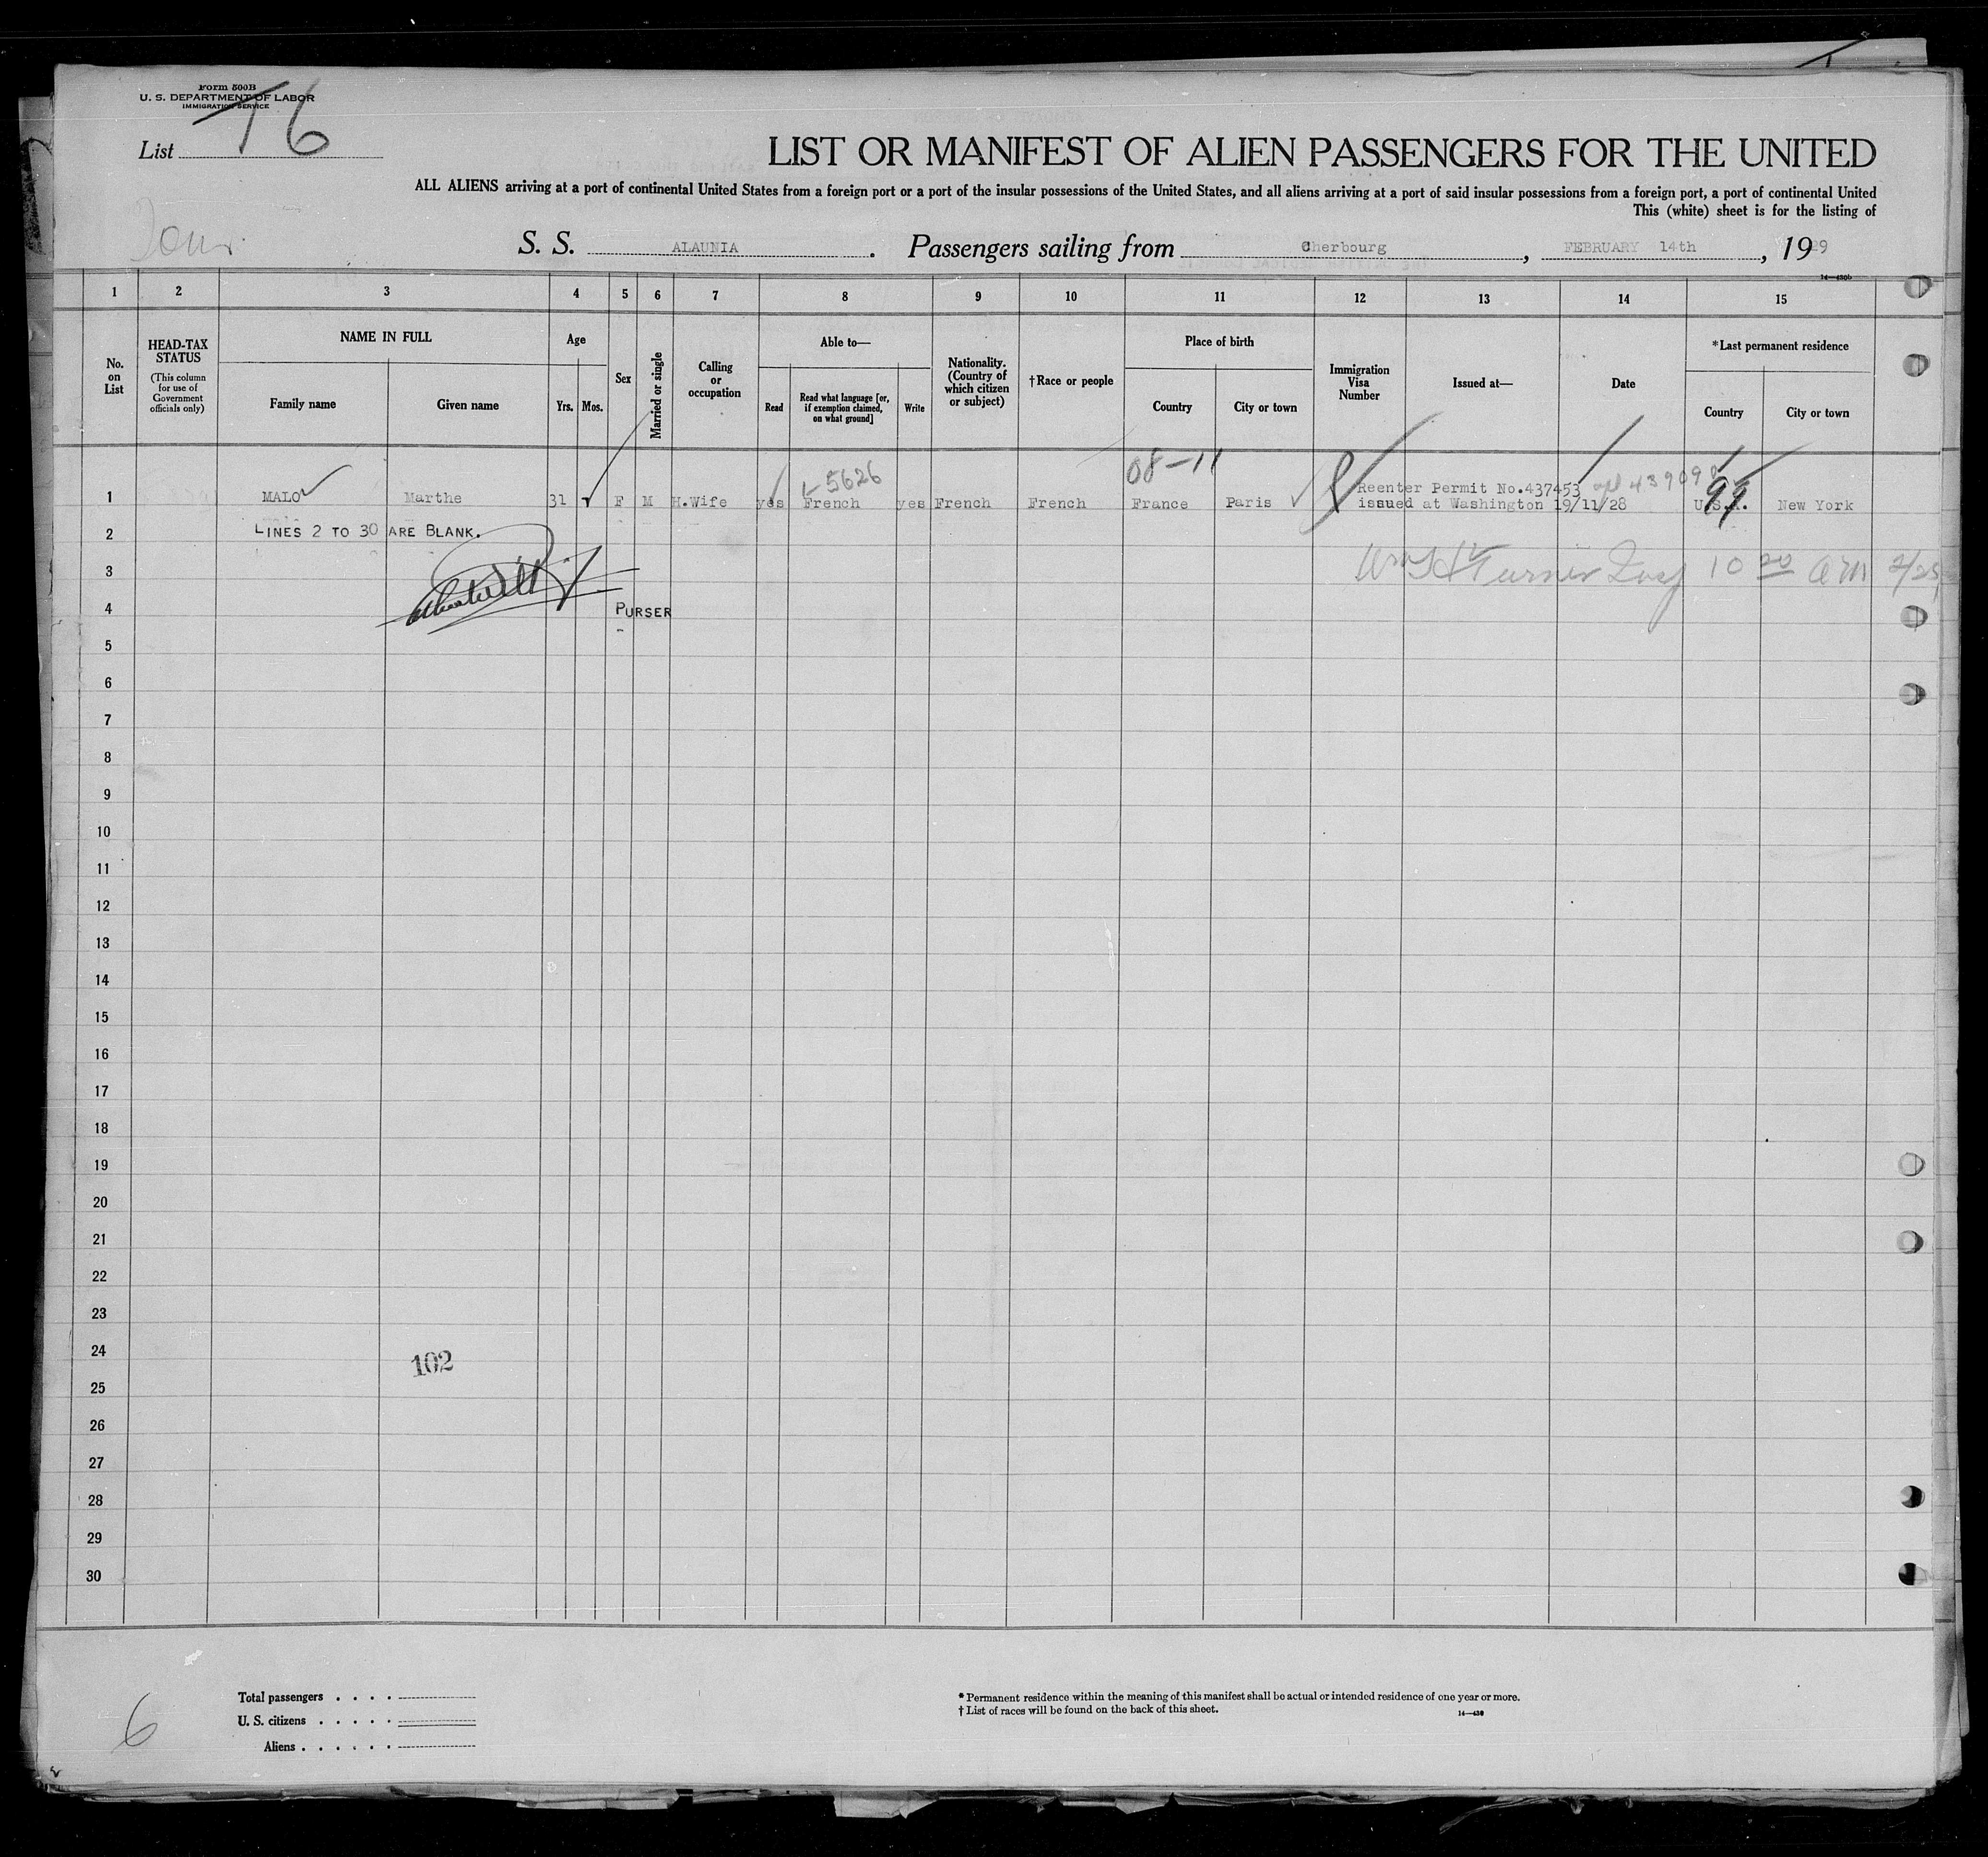 Form 500B
U. S. DEPARTMENT OF LABOR
IMMIGRATION SERVICE
List 6
LIST OR MANIFEST OF ALIEN PASSENGERS FOR THE UNITED
ALL ALIENS arriving at a port of continental United States from a foreign port or a port of the insular possessions of the United States, and all aliens arriving at a port of said insular possessions from a foreign port, a port of continental United
This (white) sheet is for the listing of
S. S. ALAUNIA. Passengers sailing from Cherbourg, FEBRUARY 14th, 1929
14—430b
1 2 3 4 5 6 7 8 9 10 11 12 13 14 15
No. on List
HEAD-TAX STATUS
(This column for use of Government officials only)
NAME IN FULL
Family name
Given name
Age
Yrs.
Mos.
Sex
Married or single
Calling or occupation
Able to—
Read
Read what language [or, if exemption claimed, on what ground]
Write
Nationality. (Country of which citizen or subject)
†Race or people
Place of birth
Country
City or town
Immigration Visa Number
Issued at—
Date
*Last permanent residence
Country
City or town
08-11
5626
439090
99
1 MALO Marthe 31 F M H.Wife yes French yes French French France Paris Reenter Permit No.437453 issued at Washington 19/11/28 U.S.A. New York
2 LINES 2 TO 30 ARE BLANK.
3 Turner 10 20 am
4 PURSER
5
6
7
8
9
10
11
12
13
14
15
16
17
18
19
20
21
22
23
24
102
25
26
27
28
29
30
6
Total passengers
U. S. citizens
Aliens
* Permanent residence within the meaning of this manifest shall be actual or intended residence of one year or more.
† List of races will be found on the back of this sheet.
14—430